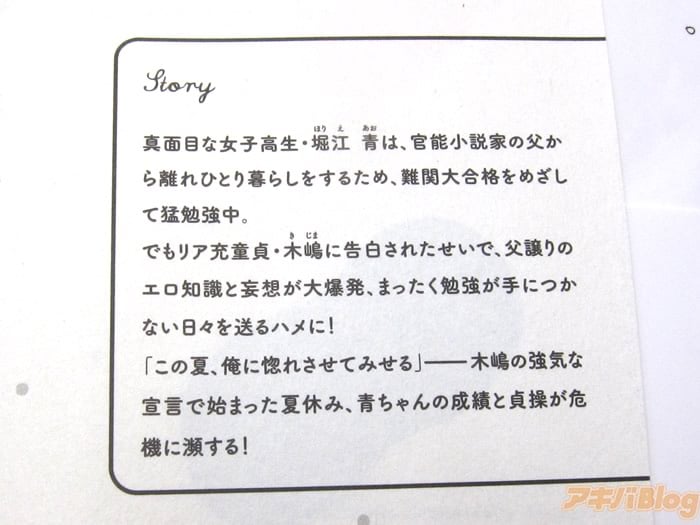 Story
真面目な女子高生・堀江 青は、官能小説家の父か
ら離れひとり暮らしをするため、難関大合格をめざし
て猛勉強中。
でもリア充童貞・木嶋に告白されたせいで、父譲りの
エロ知識と妄想が大爆発、まったく勉強が手につか
ない日々を送るハメに!
「この夏、俺に惚れさせてみせる」――木嶋の強気な
宣言で始まった夏休み、青ちゃんの成績と貞操が危
機に瀕する!
アキバBlog